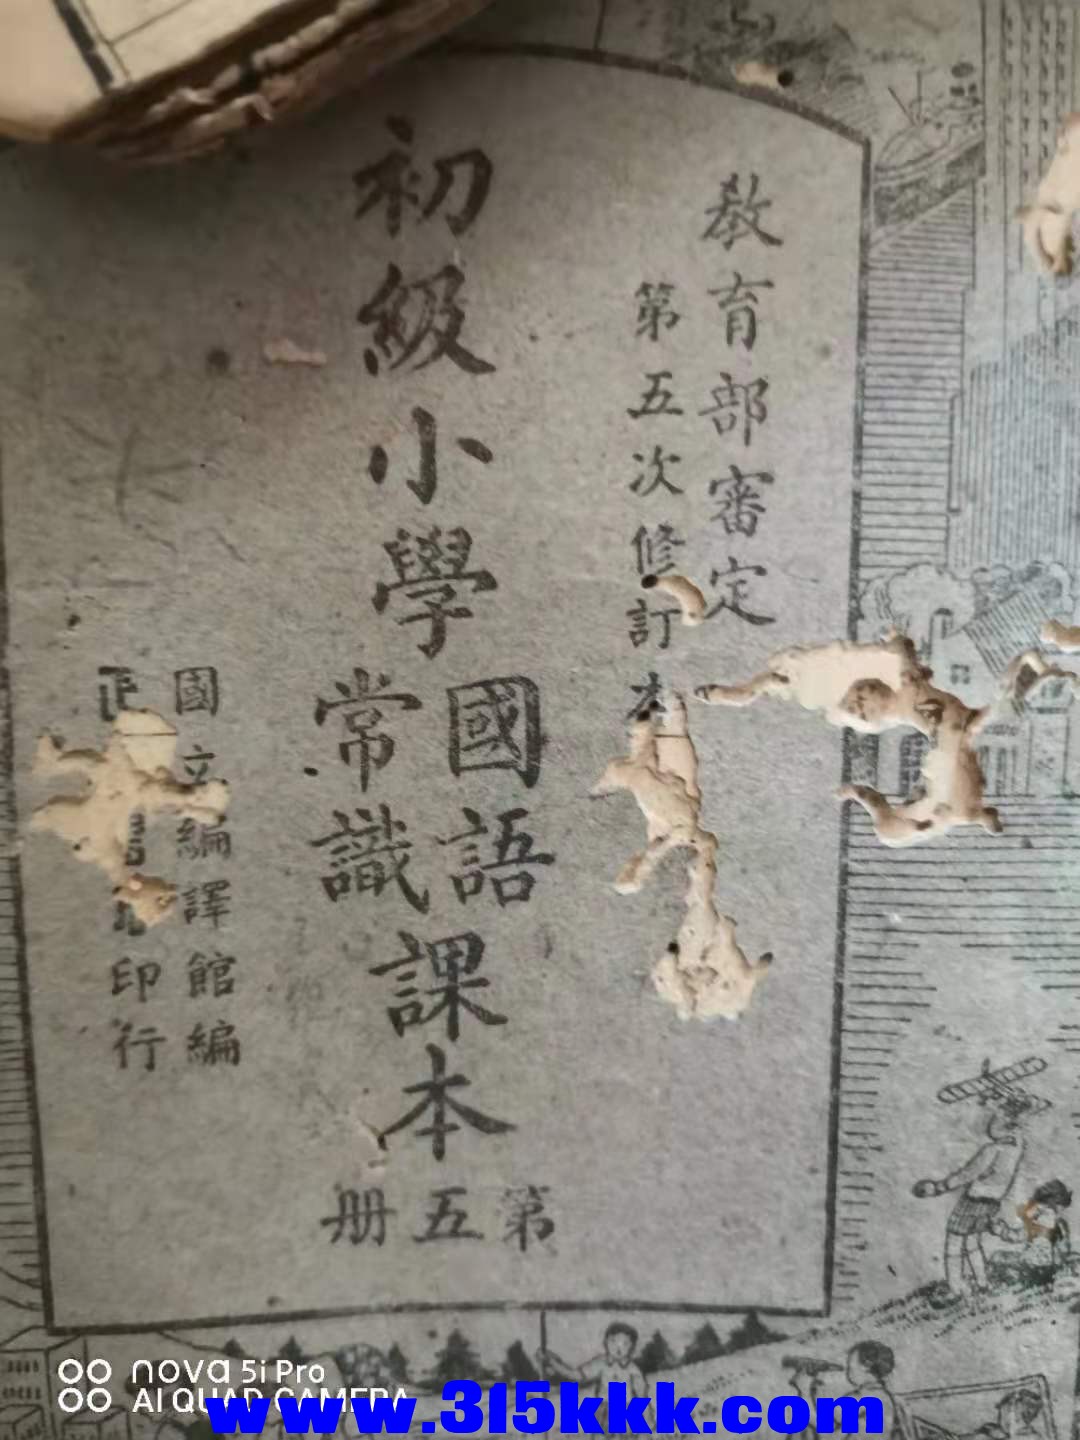 教育部審定
第五次修訂本
初級小學
國語
常識
課本
第五册
國立編譯館編
正
印行
nova 5i Pro
AI QUAD CAMERA
www.315kkk.com